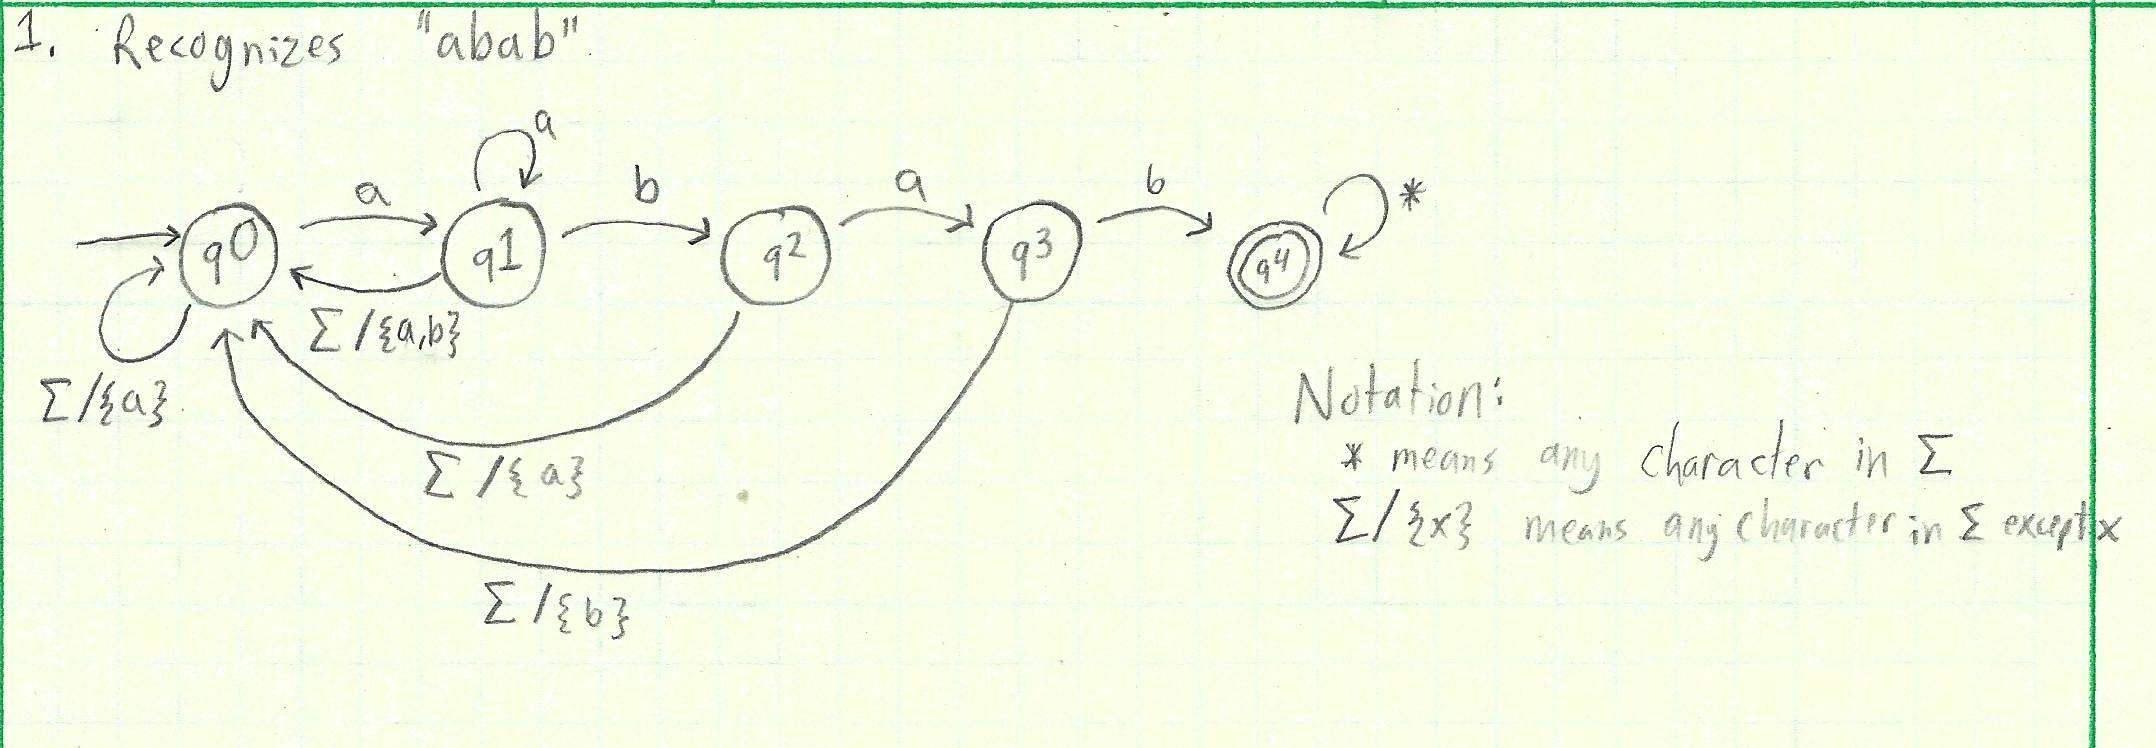 1. Recognizes "abab"
a
a
b
a
b
*
q0
q1
q2
q3
q4
Σ/{a,b}
Σ/{a}
Σ/{a}
Σ/{b}
Notation:
* means any character in Σ
Σ/{x} means any character in Σ except x